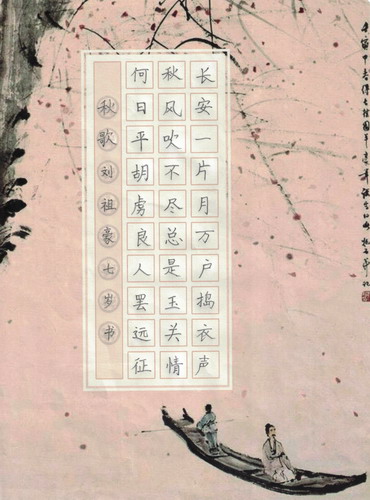 长安一片月万户捣衣声
秋风吹不尽总是玉关情
何日平胡虏良人罢远征
秋歌刘祖豪七岁书